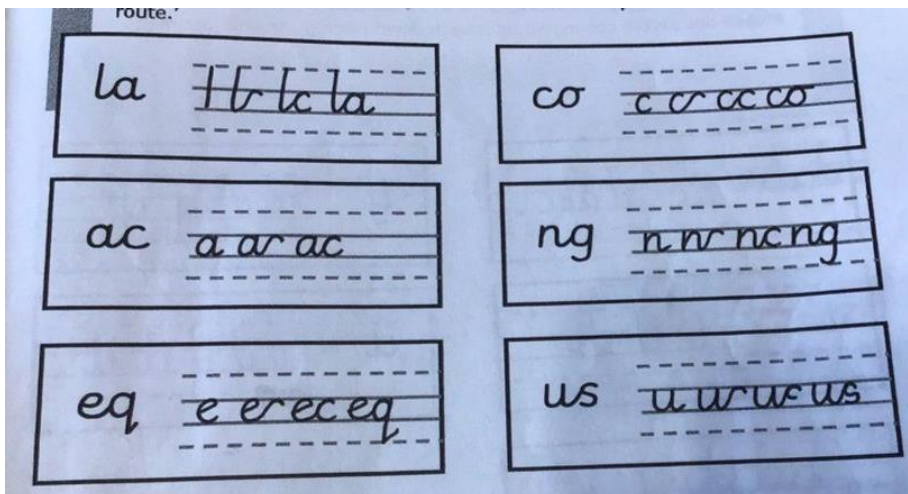 route.'
la l lr lc la
co c cr cc co
ac a ar ac
ng n nr nc ng
eq e er ec eq
us u ur uc us